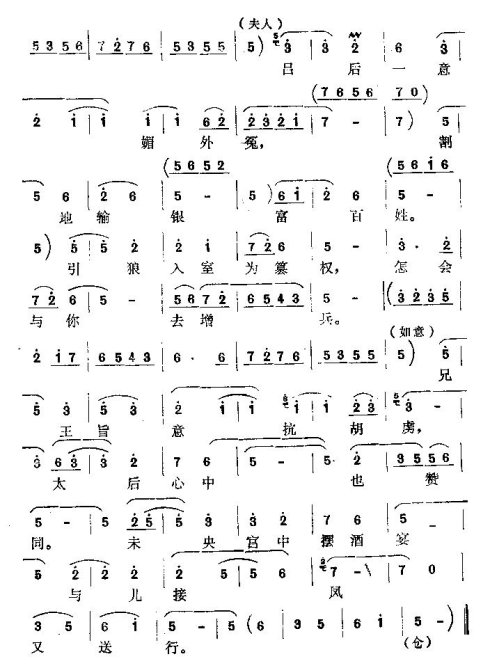 (夫人)
5 3 5 6 | 7 2 7 6 | 5 3 5 5 | 5) 3 | 3 2 | 6 3
吕 后 一 意
(7 6 5 6 | 7 0)
2 1 | 1 1 | 1 6 2 | 2 3 2 1 | 7 - | 7) 5
媚 外 冤, 割
(5 6 5 2 (5 6 1 6
5 6 | 2 6 | 5 - | 5) 6 1 | 2 6 | 5 -
地 输 银 富 百 姓。
5) 5 | 5 2 | 2 1 | 7 2 6 | 5 - | 3 · 2
引 狼 入 室 为 篡 权, 怎 会
7 2 6 | 5 - | 5 6 7 2 | 6 5 4 3 | 5 - | (3 2 3 5
与 你 去 增 兵。
(如意)
2 1 7 | 6 5 4 3 | 6 · 6 | 7 2 7 6 | 5 3 5 5 | 5) 5
兄
5 3 | 5 3 | 2 1 | 1 1 | 1 2 3 | 3 -
王 旨 意 抗 胡 虏,
3 6 3 | 3 2 | 7 6 | 5 - | 5 · 2 | 3 5 5 6
太 后 心 中 也 赞
5 - | 5 - | 2 5 5 | 3 2 | 7 6 | 5 -
同。 未 央 宫 中 摆 酒 宴
5 2 | 2 2 | 5 2 | 5 6 | 7 - | 7 0
与 儿 接 风
3 5 | 6 1 | 5 - | 5 (6 | 3 5 | 6 1 | 5 -)
又 送 行。 (仓)